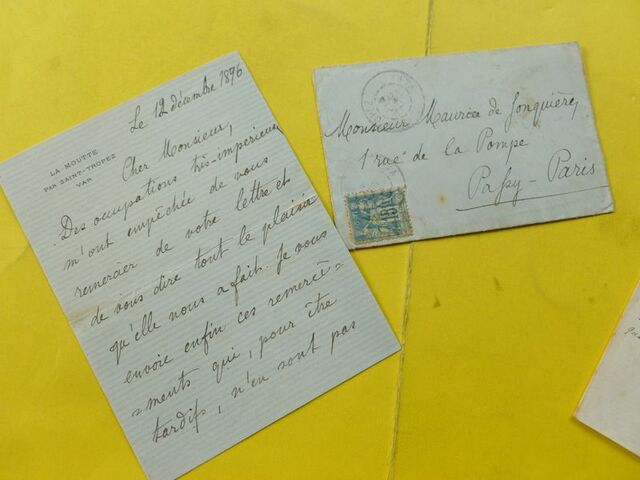 LA MOUTTE
PAR SAINT-TROPEZ
VAR
Le 12 décembre 1896
Cher Monsieur,
Des occupations très-imperieuses
m'ont empêchée de vous
remercier de votre lettre et
de vous dire tout le plaisir
qu'elle nous a fait. Je vous
envoie enfin ces remercî=
=ments qui, pour être
tardifs, n'en sont pas
Monsieur Maurice de Jonquières
1 rue de la Pompe
Passy-Paris
15